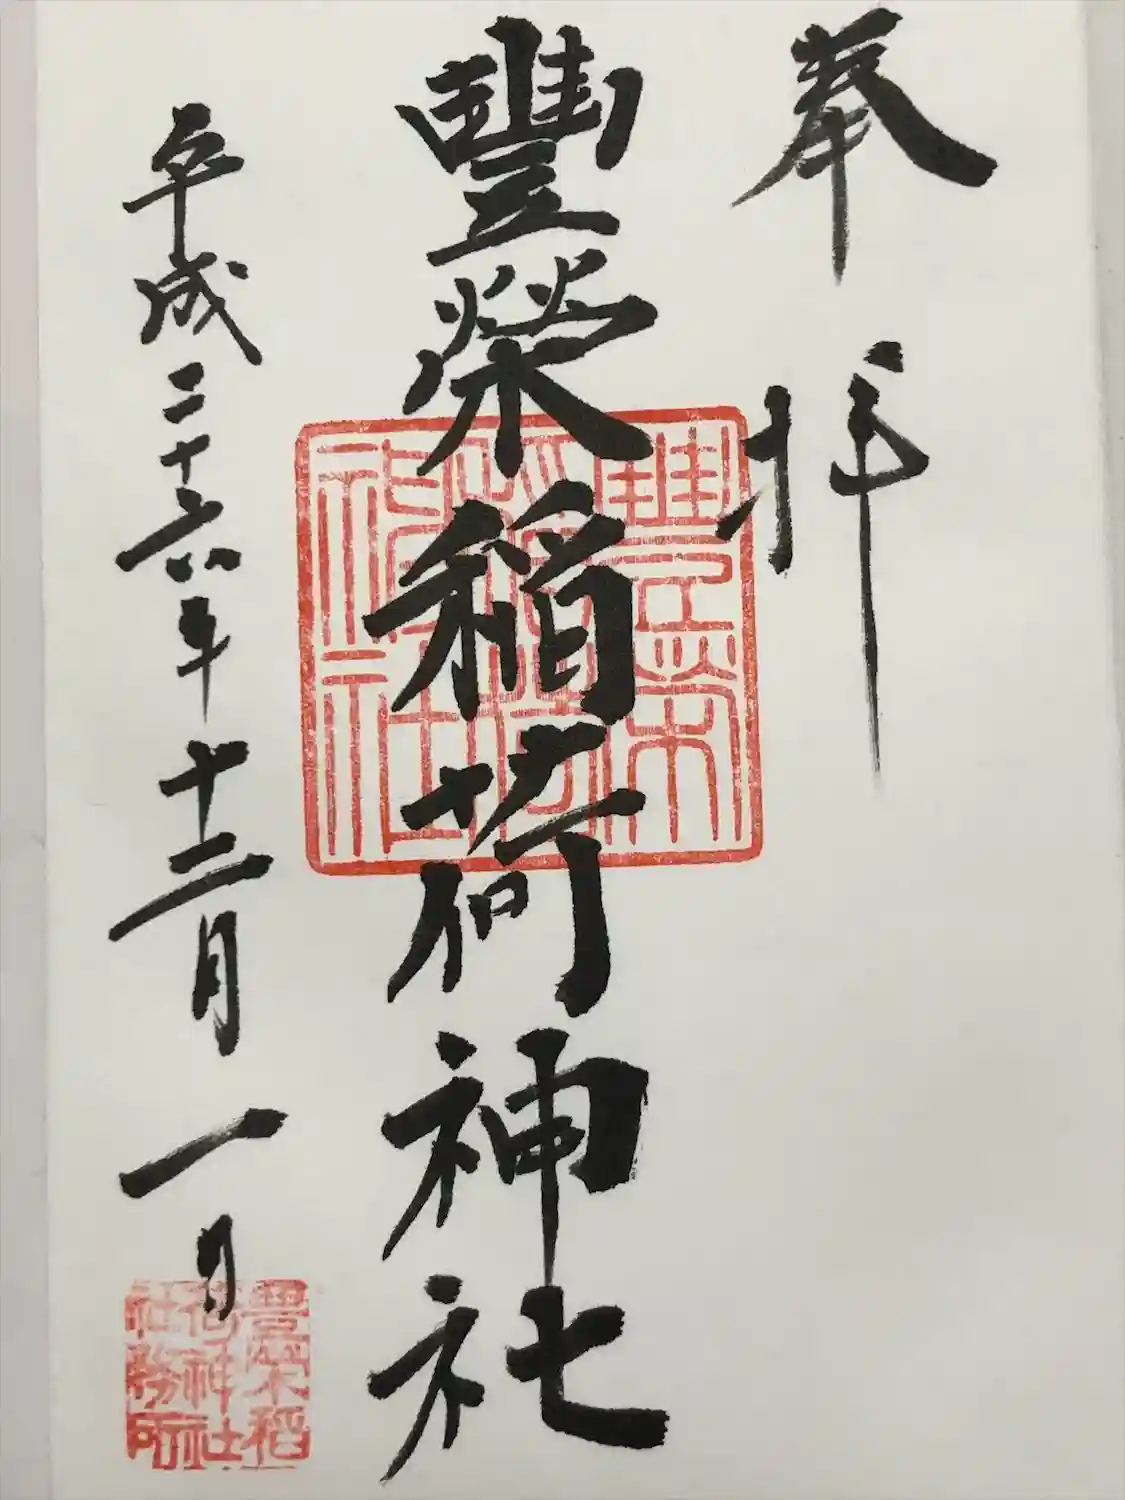 奉拝
豐榮稲荷神社
平成二十六年十二月一日
豊榮
稲荷
神社
豊栄稲
荷神社
社務所